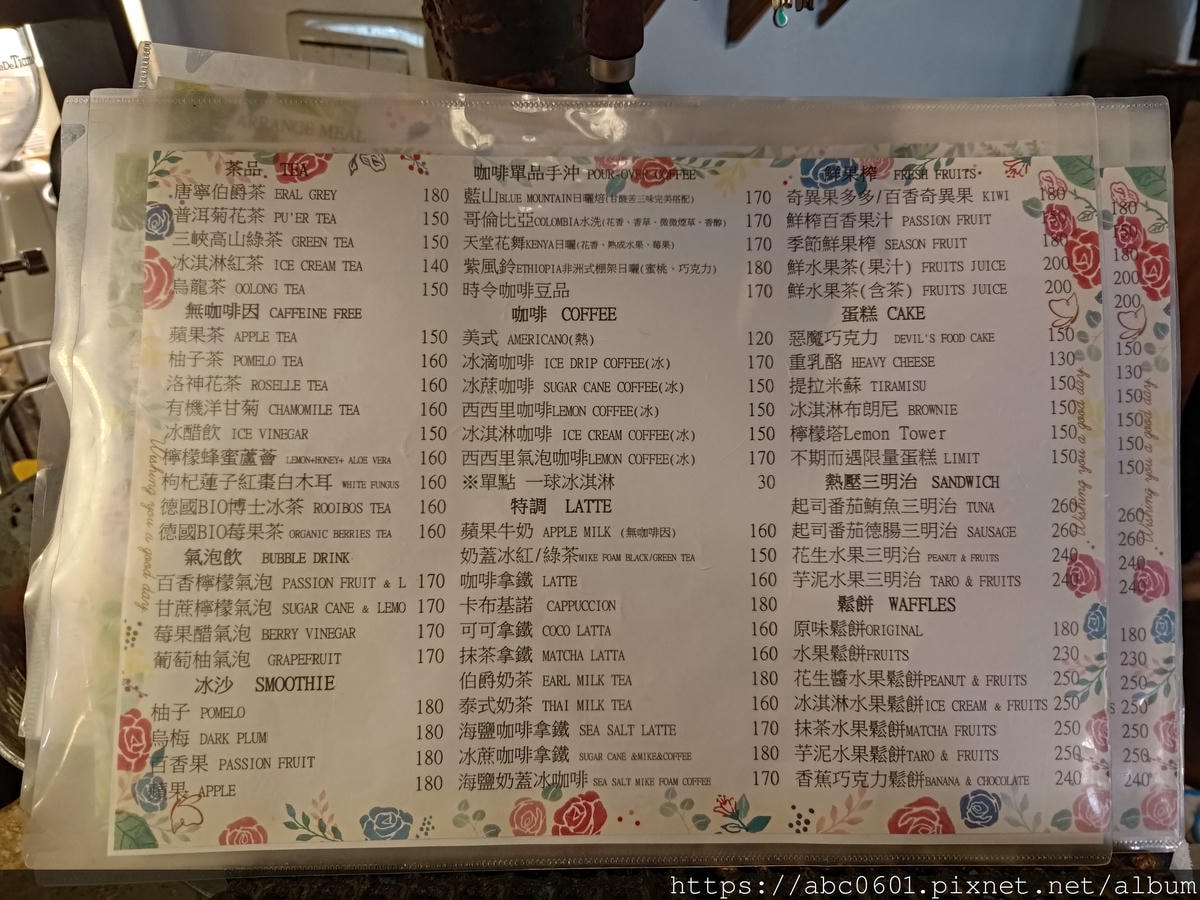 茶品 TEA
唐寧伯爵茶 ERAL GREY 180
普洱菊花茶 PU'ER TEA 150
三峽高山綠茶 GREEN TEA 150
冰淇淋紅茶 ICE CREAM TEA 140
烏龍茶 OOLONG TEA 150
無咖啡因 CAFFEINE FREE
蘋果茶 APPLE TEA 150
柚子茶 POMELO TEA 160
洛神花茶 ROSELLE TEA 160
有機洋甘菊 CHAMOMILE TEA 160
冰醋飲 ICE VINEGAR 150
檸檬蜂蜜蘆薈 LEMON+HONEY+ ALOE VERA 160
枸杞蓮子紅棗白木耳 WHITE FUNGUS 160
德國BIO博士冰茶 ROOIBOS TEA 160
德國BIO莓果茶 ORGANIC BERRIES TEA 160
氣泡飲 BUBBLE DRINK
百香檸檬氣泡 PASSION FRUIT & L 170
甘蔗檸檬氣泡 SUGAR CANE & LEMO 170
莓果醋氣泡 BERRY VINEGAR 170
葡萄柚氣泡 GRAPEFRUIT 170
冰沙 SMOOTHIE
柚子 POMELO 180
烏梅 DARK PLUM 180
百香果 PASSION FRUIT 180
蘋果 APPLE 180
咖啡單品手沖 POUR-OVER COFFEE
藍山BLUE MOUNTAIN日曬焙(甘酸苦三味完美搭配) 170
哥倫比亞COLOMBIA水洗(花香、香草、微微煙草、香醇) 170
天堂花舞KENYA日曬(花香、熟成水果、莓果) 170
紫風鈴ETHIOPIA非洲式棚架日曬(蜜桃、巧克力) 180
時令咖啡豆品 170
咖啡 COFFEE
美式 AMERICANO(熱) 120
冰滴咖啡 ICE DRIP COFFEE(冰) 170
冰蔗咖啡 SUGAR CANE COFFEE(冰) 150
西西里咖啡LEMON COFFEE(冰) 150
冰淇淋咖啡 ICE CREAM COFFEE(冰) 150
西西里氣泡咖啡LEMON COFFEE(冰) 170
※單點 一球冰淇淋 30
特調 LATTE
蘋果牛奶 APPLE MILK (無咖啡因) 160
奶蓋冰紅/綠茶MIKE FOAM BLACK/GREEN TEA 150
咖啡拿鐵 LATTE 160
卡布基諾 CAPPUCCION 180
可可拿鐵 COCO LATTA 160
抹茶拿鐵 MATCHA LATTA 160
伯爵奶茶 EARL MILK TEA 180
泰式奶茶 THAI MILK TEA 160
海鹽咖啡拿鐵 SEA SALT LATTE 170
冰蔗咖啡拿鐵 SUGAR CANE &MIKE&COFFEE 180
海鹽奶蓋冰咖啡 SEA SALT MIKE FOAM COFFEE 170
鮮果榨 FRESH FRUITS
奇異果多多/百香奇異果 KIWI 180
鮮榨百香果汁 PASSION FRUIT 180
季節鮮果榨 SEASON FRUIT 180
鮮水果茶(果汁) FRUITS JUICE 200
鮮水果茶(含茶) FRUITS JUICE 200
蛋糕 CAKE
惡魔巧克力 DEVIL'S FOOD CAKE 150
重乳酪 HEAVY CHEESE 130
提拉米蘇 TIRAMISU 150
冰淇淋布朗尼 BROWNIE 150
檸檬塔Lemon Tower 150
不期而遇限量蛋糕 LIMIT 150
熱壓三明治 SANDWICH
起司番茄鮪魚三明治 TUNA 260
起司番茄德腸三明治 SAUSAGE 260
花生水果三明治 PEANUT & FRUITS 240
芋泥水果三明治 TARO & FRUITS 240
鬆餅 WAFFLES
原味鬆餅ORIGINAL 180
水果鬆餅FRUITS 230
花生醬水果鬆餅PEANUT & FRUITS 250
冰淇淋水果鬆餅ICE CREAM & FRUITS 250
抹茶水果鬆餅MATCHA FRUITS 250
芋泥水果鬆餅TARO & FRUITS 250
香蕉巧克力鬆餅BANANA & CHOCOLATE 240
Wishing you a good day
Wishing you a good day
Wishing you a good day
ARRANGE MEAL
https://abc0601.pixnet.net/album